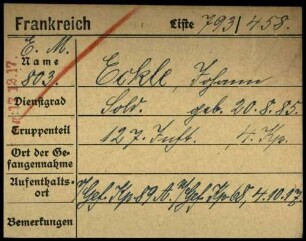 Frankreich Liste 793/458.
E. M.
Name
803.
Eckle, Johann
Dienstgrad
Sold. geb. 20.8.85.
Truppenteil
127. Inft. 4. Kp.
Ort der Ge-
fangennahme
Aufenthalts-
ort
Gef. Kp. 89 A. Gef. Kp. 68, 4.10.17
Bemerkungen